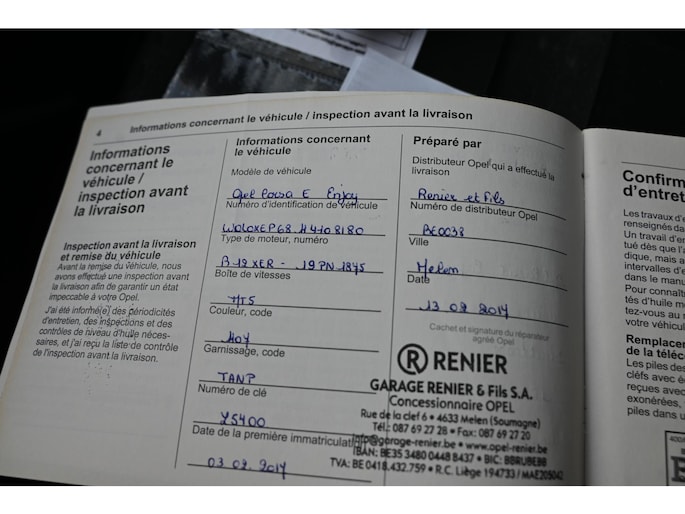 4
Informations concernant le véhicule / inspection avant la livraison
Informations
concernant le
véhicule /
inspection avant
la livraison
Inspection avant la livraison
et remise du véhicule
Avant la remise du véhicule, nous
avons effectué une inspection avant
la livraison afin de garantir un état
impeccable à votre Opel.
J'ai été informé(e) des périodicités
d'entretien, des inspections et des
contrôles de niveau d'huile néces-
saires, et j'ai reçu la liste de contrôle
de l'inspection avant la livraison.
Informations concernant
le véhicule
Modèle de véhicule
Opel Corsa E Enjoy
Numéro d'identification de véhicule
Type de moteur, numéro
B 12 XER - 19 PN 1845
Boîte de vitesses
MT5
Couleur, code
Garnissage, code
TANP
Numéro de clé
Date de la première immatriculation
Préparé par
Distributeur Opel qui a effectué la
livraison
Renier et Fils
Numéro de distributeur Opel
BE0038
Ville
Melen
Date
Cachet et signature du réparateur
agréé Opel
R RENIER
GARAGE RENIER & Fils S.A.
Concessionnaire OPEL
Rue de la clef 6 • 4633 Melen (Soumagne)
Tél.: 087 69 27 28 • Fax: 087 69 27 20
info@garage-renier.be • www.opel-renier.be
IBAN: BE35 3480 0448 8437 • BIC: BBRUBEBB
TVA: BE 0418.432.759 • R.C. Liège 194733 / MAE205042
Confirm
d'entret
Les travaux d'e
renseignés dans
Un travail d'en
tué dès que l'a
dique, mais a
intervalles d'e
dans le manu
Pour connaît
tés d'huile m
tez-vous au
votre véhicul
Remplacem
de la téléco
Les piles des
clefs avec é
reçues avec
exonérées,
piles dans u